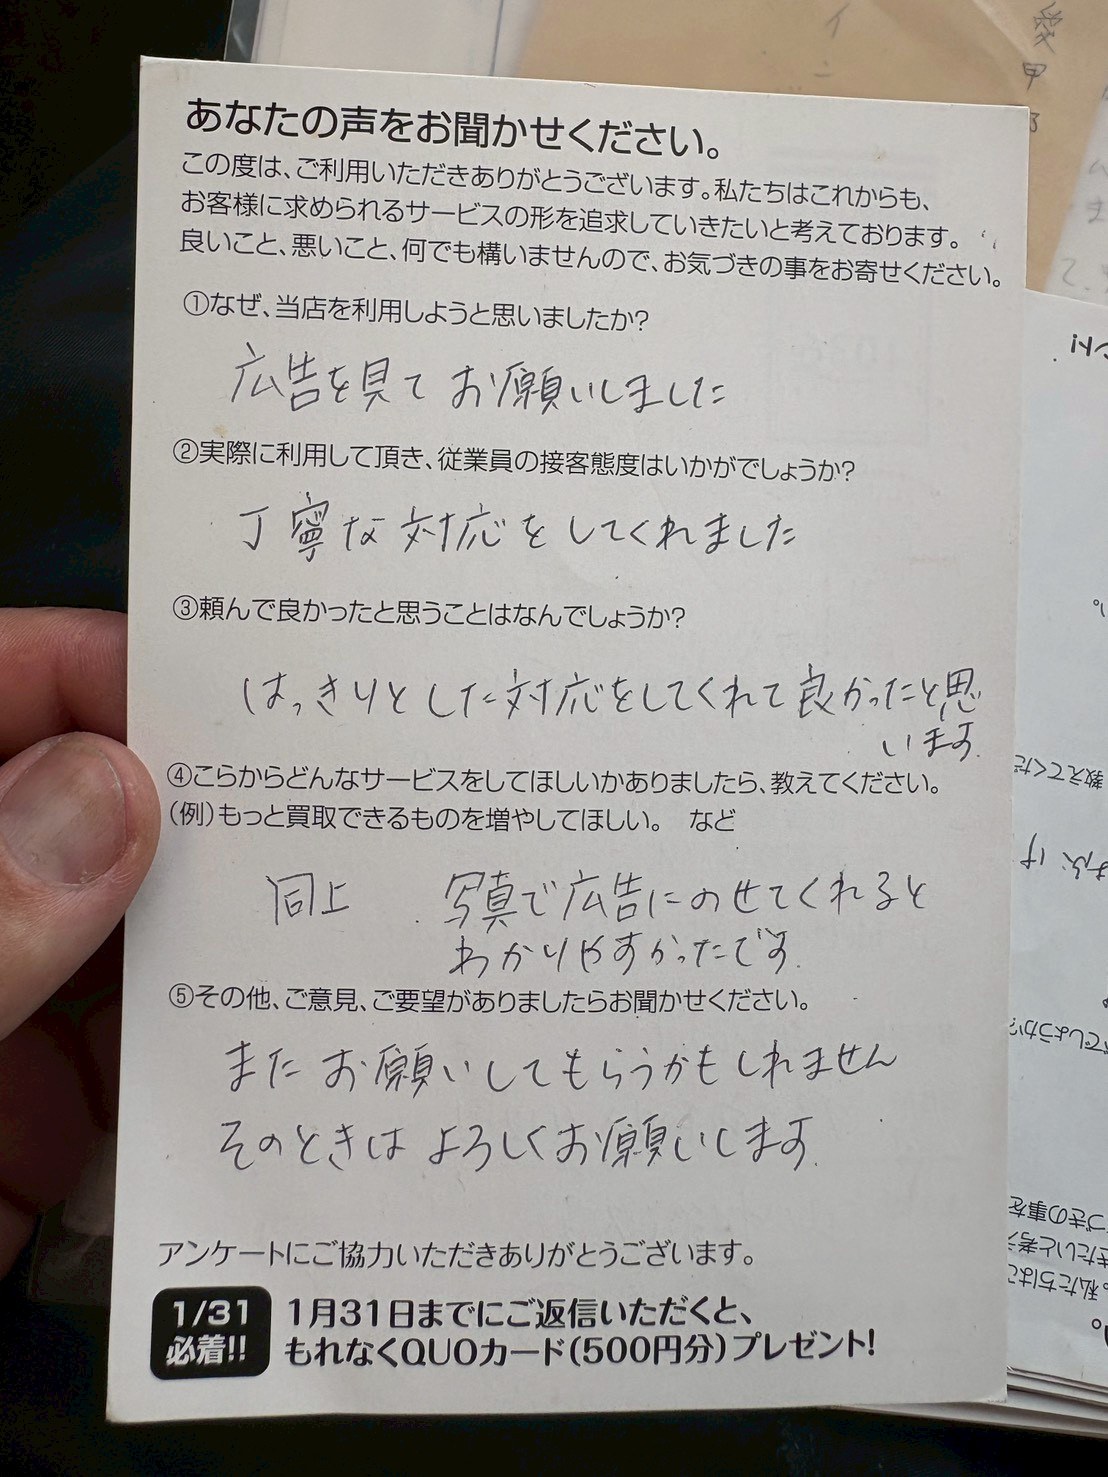 あなたの声をお聞かせください。
この度は、ご利用いただきありがとうございます。私たちはこれからも、
お客様に求められるサービスの形を追求していきたいと考えております。
良いこと、悪いこと、何でも構いませんので、お気づきの事をお寄せください。
①なぜ、当店を利用しようと思いましたか?
広告を見て お願いしました
②実際に利用して頂き、従業員の接客態度はいかがでしょうか?
丁寧な対応をしてくれました
③頼んで良かったと思うことはなんでしょうか?
はっきりとした対応をしてくれて良かったと思
います.
④こらからどんなサービスをしてほしいかありましたら、教えてください。
(例)もっと買取できるものを増やしてほしい。 など
同上 写真で広告にのせてくれると
わかりやすかったです.
⑤その他、ご意見、ご要望がありましたらお聞かせください。
また お願いしてもらうかもしれません
そのときは よろしくお願いします.
アンケートにご協力いただきありがとうございます。
1/31
必着!!
1月31日までにご返信いただくと、
もれなくQUOカード(500円分)プレゼント!
愛
甲
イ
教えてくだ
でしょうか?
づきの事を
きたいと考え
。私たちはこ